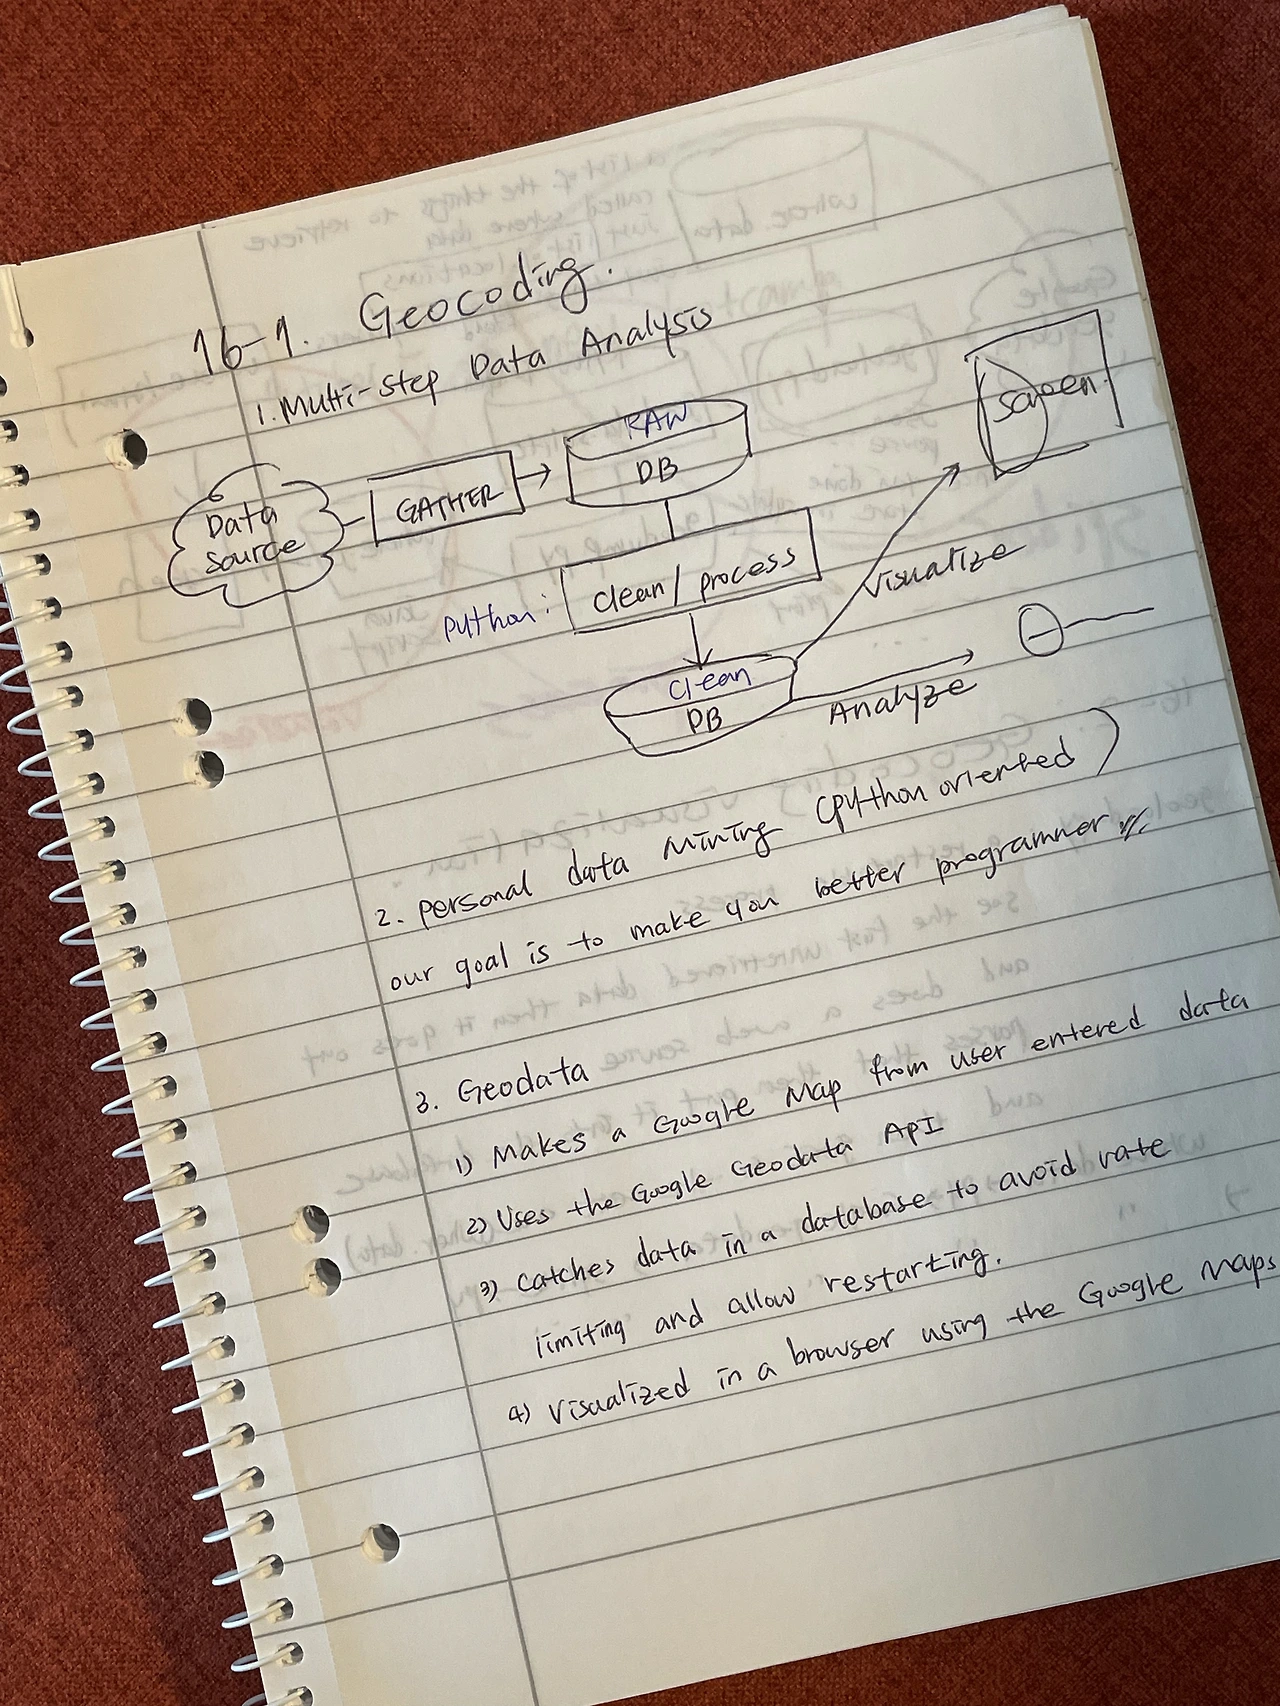 16-1. Geocoding.
1. Multi-step Data Analysis
Data
source
GATHER
RAW
DB
screen
python:
clean/process
visualize
clean
DB
Analyze
2. personal data mining (python oriented)
our goal is to make you better programmer
3. Geodata
1) Makes a Google Map from user entered data
2) Uses the Google Geodata API
3) catches data in a database to avoid rate
limiting and allow restarting.
4) visualized in a browser using the Google Maps